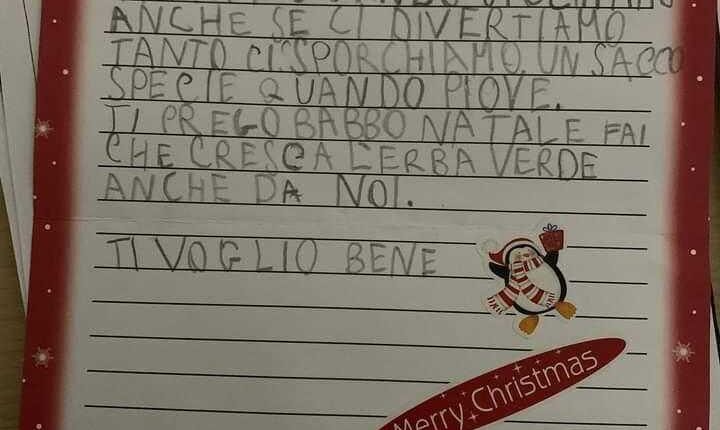 ANCHE SE CI DIVERTIAMO
TANTO CI SPORCHIAMO UN SACCO
SPECIE QUANDO PIOVE.
TI PREGO BABBO NATALE FAI
CHE CRESCA L'ERBA VERDE
ANCHE DA NOI.
TI VOGLIO BENE
Merry Christmas